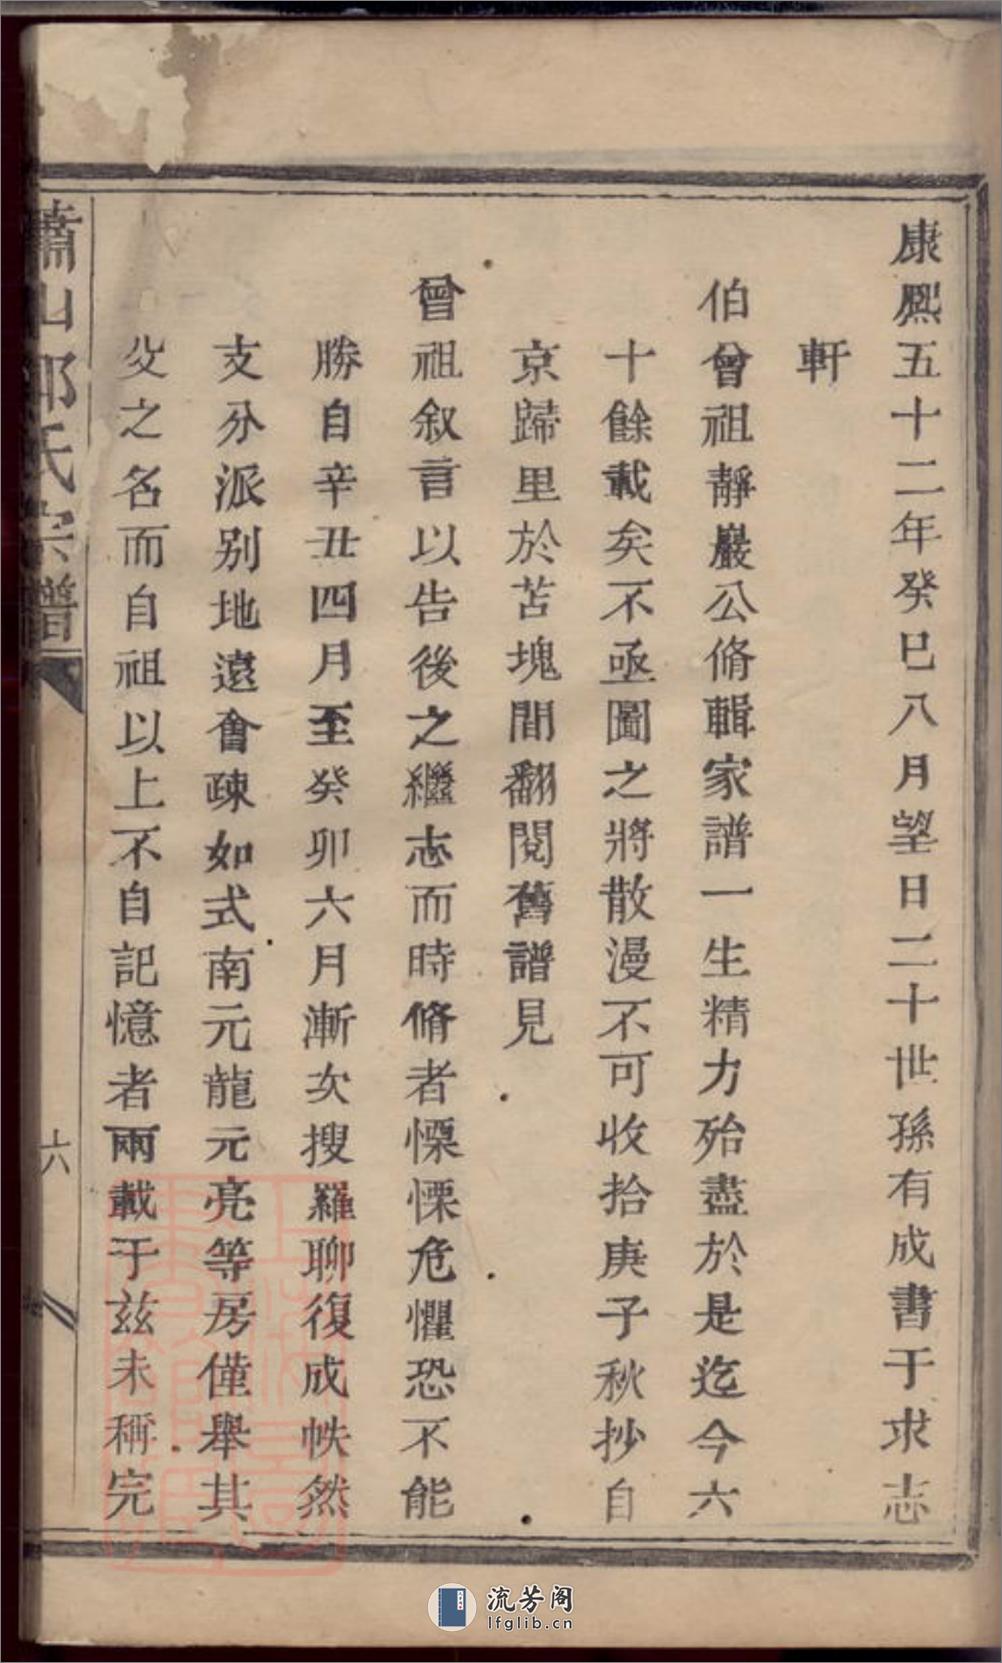 康熙五十二年癸巳八月望日二十世孫有成書于求志
軒
伯曾祖靜巖公脩輯家譜一生精力殆盡於是迄今六
十餘載矣不亟圖之將散漫不可收拾庚子秋抄自
京歸里於苫塊間翻閱舊譜見
曾祖叙言以告後之繼志而時脩者慄慄危懼恐不能
勝自辛丑四月至癸卯六月漸次搜羅聊復成帙然
支分派别地遠會疎如式南元龍元亮等房僅舉其
父之名而自祖以上不自記憶者兩載于兹未稱完
蕭山郎氏宗譜
六
流芳阁
lfglib.cn